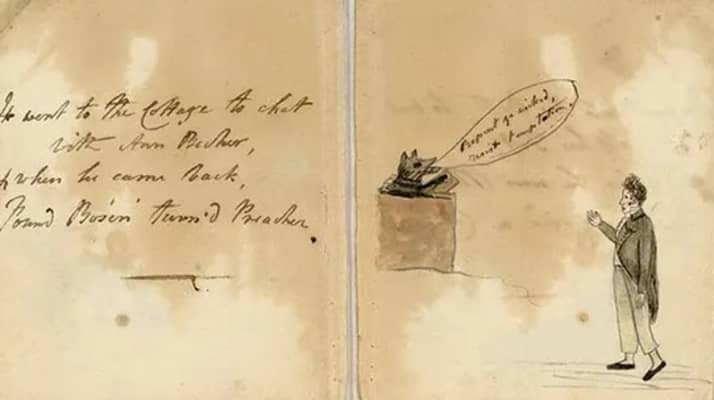 went to the Cottage to chat
with Ann Belcher,
when he came Back,
Found Bos'en turn'd Preacher
Repent ye wicked,
resist temptation.